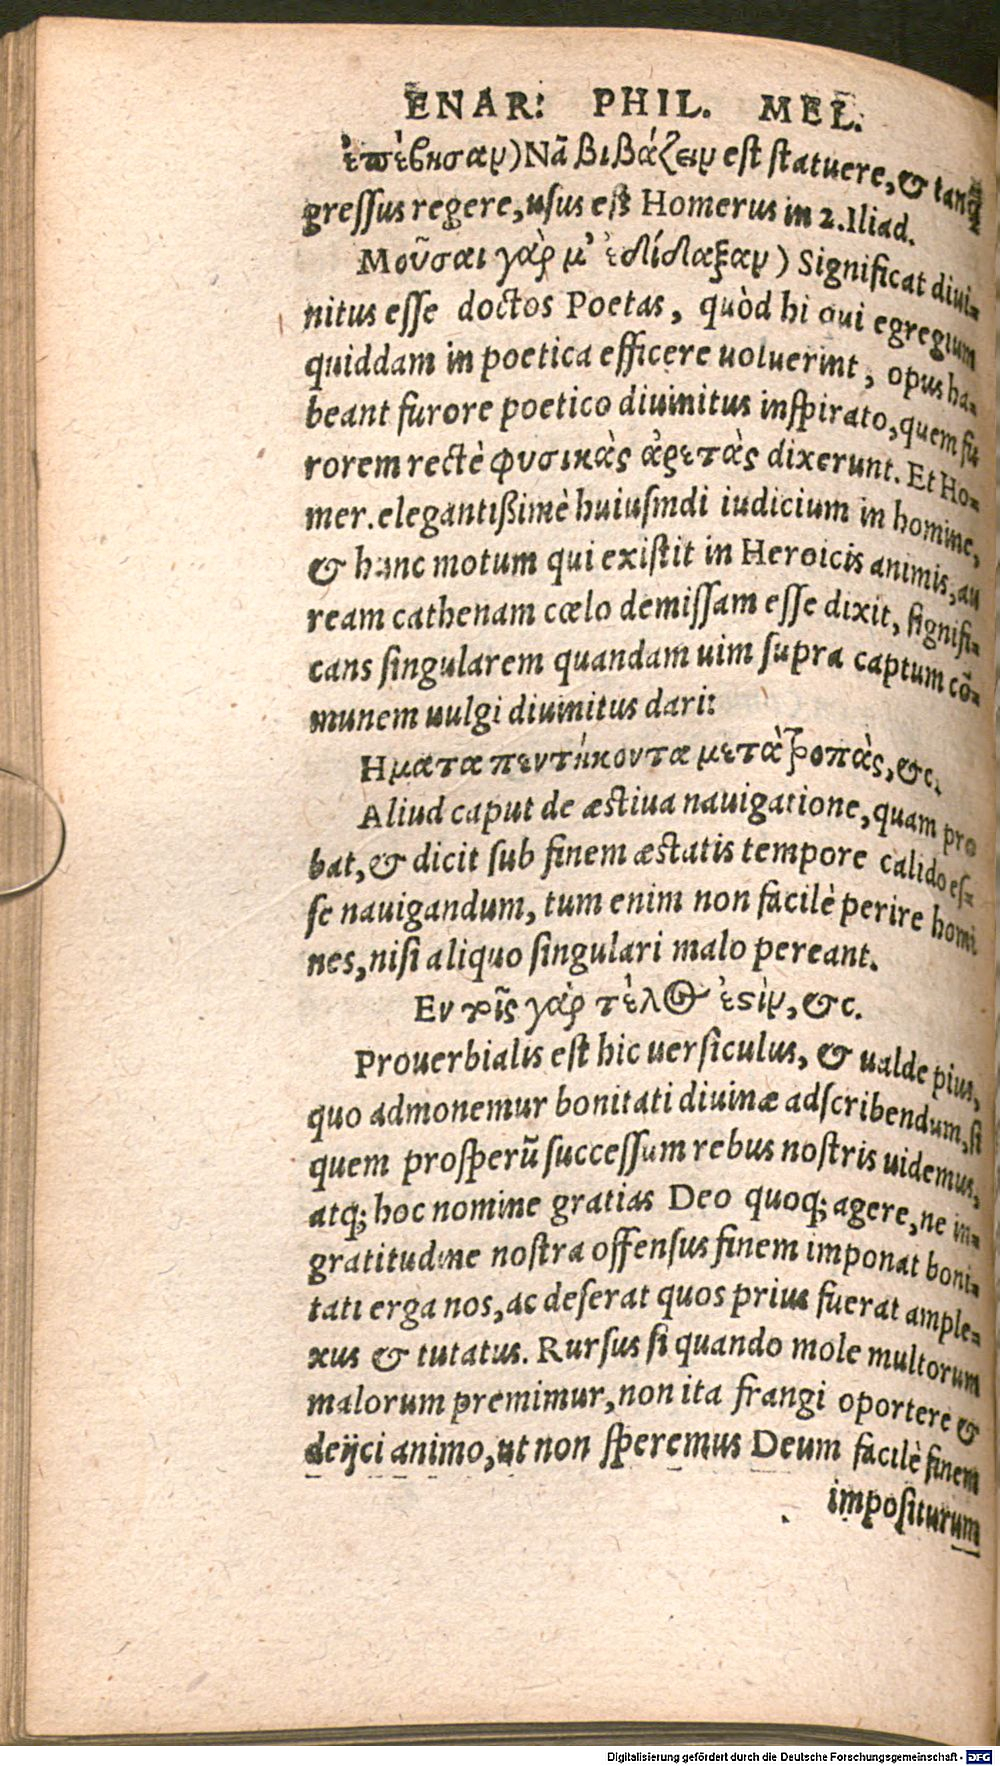 ENAR: PHIL. MEL.
ἐπέβησαν) Nã βιβάζειν est statuere, & tanꝗ̃
gressus regere, usus est Homerus in 2. Iliad.
Μοῦσαι γὰρ μ' ἐδίδαξαν) Significat diui-
nitus esse doctos Poetas, quòd hi qui egregium
quiddam in poetica efficere uoluerint, opus ha-
beant furore poetico diuinitus inspirato, quem fu
rorem rectè φυσικὰς ἀρετὰς dixerunt. Et Ho-
mer. elegantißimè huiusmdi iudicium in homine,
& hanc motum qui existit in Heroicis animis, au
ream cathenam cœlo demissam esse dixit, signifi-
cans singularem quandam uim supra captum cõ-
munem uulgi diuinitus dari:
Ηματα πεντήκοντα μετὰ τροπὰς, &c.
Aliud caput de æstiua nauigatione, quam pro
bat, & dicit sub finem æstatis tempore calido es-
se nauigandum, tum enim non facilè perire homi
nes, nisi aliquo singulari malo pereant.
Εν τοῖς γάρ τέλος ἐστὶν, &c.
Prouerbialis est hic uersiculus, & ualde pius,
quo admonemur bonitati diuinæ adscribendum, si
quem prosperũ successum rebus nostris uidemus,
atq; hoc nomine gratias Deo quoq; agere, ne in-
gratitudine nostra offensus finem imponat boni-
tati erga nos, ac deserat quos prius fuerat ample-
xus & tutatus. Rursus si quando mole multorum
malorum premimur, non ita frangi oportere &
deijci animo, ut non speremus Deum facilè finem
impositurum
Digitalisierung gefördert durch die Deutsche Forschungsgemeinschaft - DFG